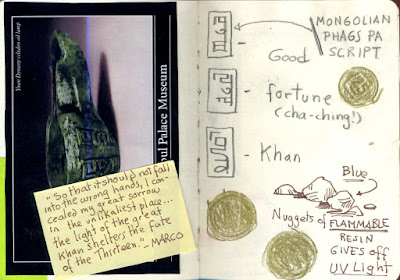 Yuan Dynasty celadon oil lamp
bul Palace Museum
"So that it should not fall
into the wrong hands, I con-
cealed my great sorrow
in the unlikeliest place...
the light of the great
Khan shelters the fate
of the Thirteen." MARCO
MONGOLIAN
PHAGS PA
SCRIPT
- Good
- fortune
(cha-ching!)
- Khan
Blue
Nuggets of FLAMMABLE
RESIN
GIVES off
UV Light